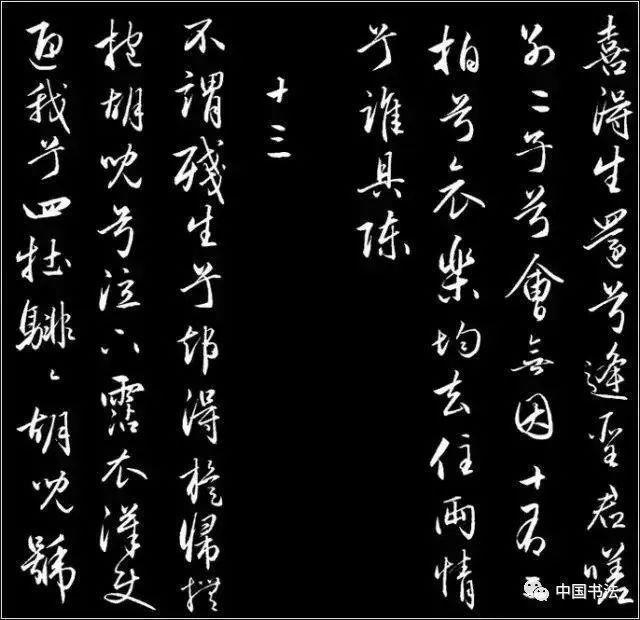 喜得生還兮逢聖君嗟
別二子兮會無因十有
拍兮哀樂均去住兩情
兮誰具陳
十三
不謂殘生兮却得旋歸撫
抱胡兒兮泣下霑衣漢使
迎我兮四牡騑〻胡兒號
中国书法